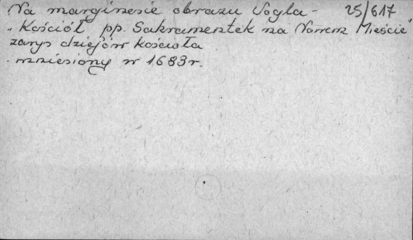 Na marginesie obrazu Vogla - 25/617
"Kościół pp. Sakramentek na Nowem Mieście"
zarys dziejów kościoła
wzniesiony w 1683 r.